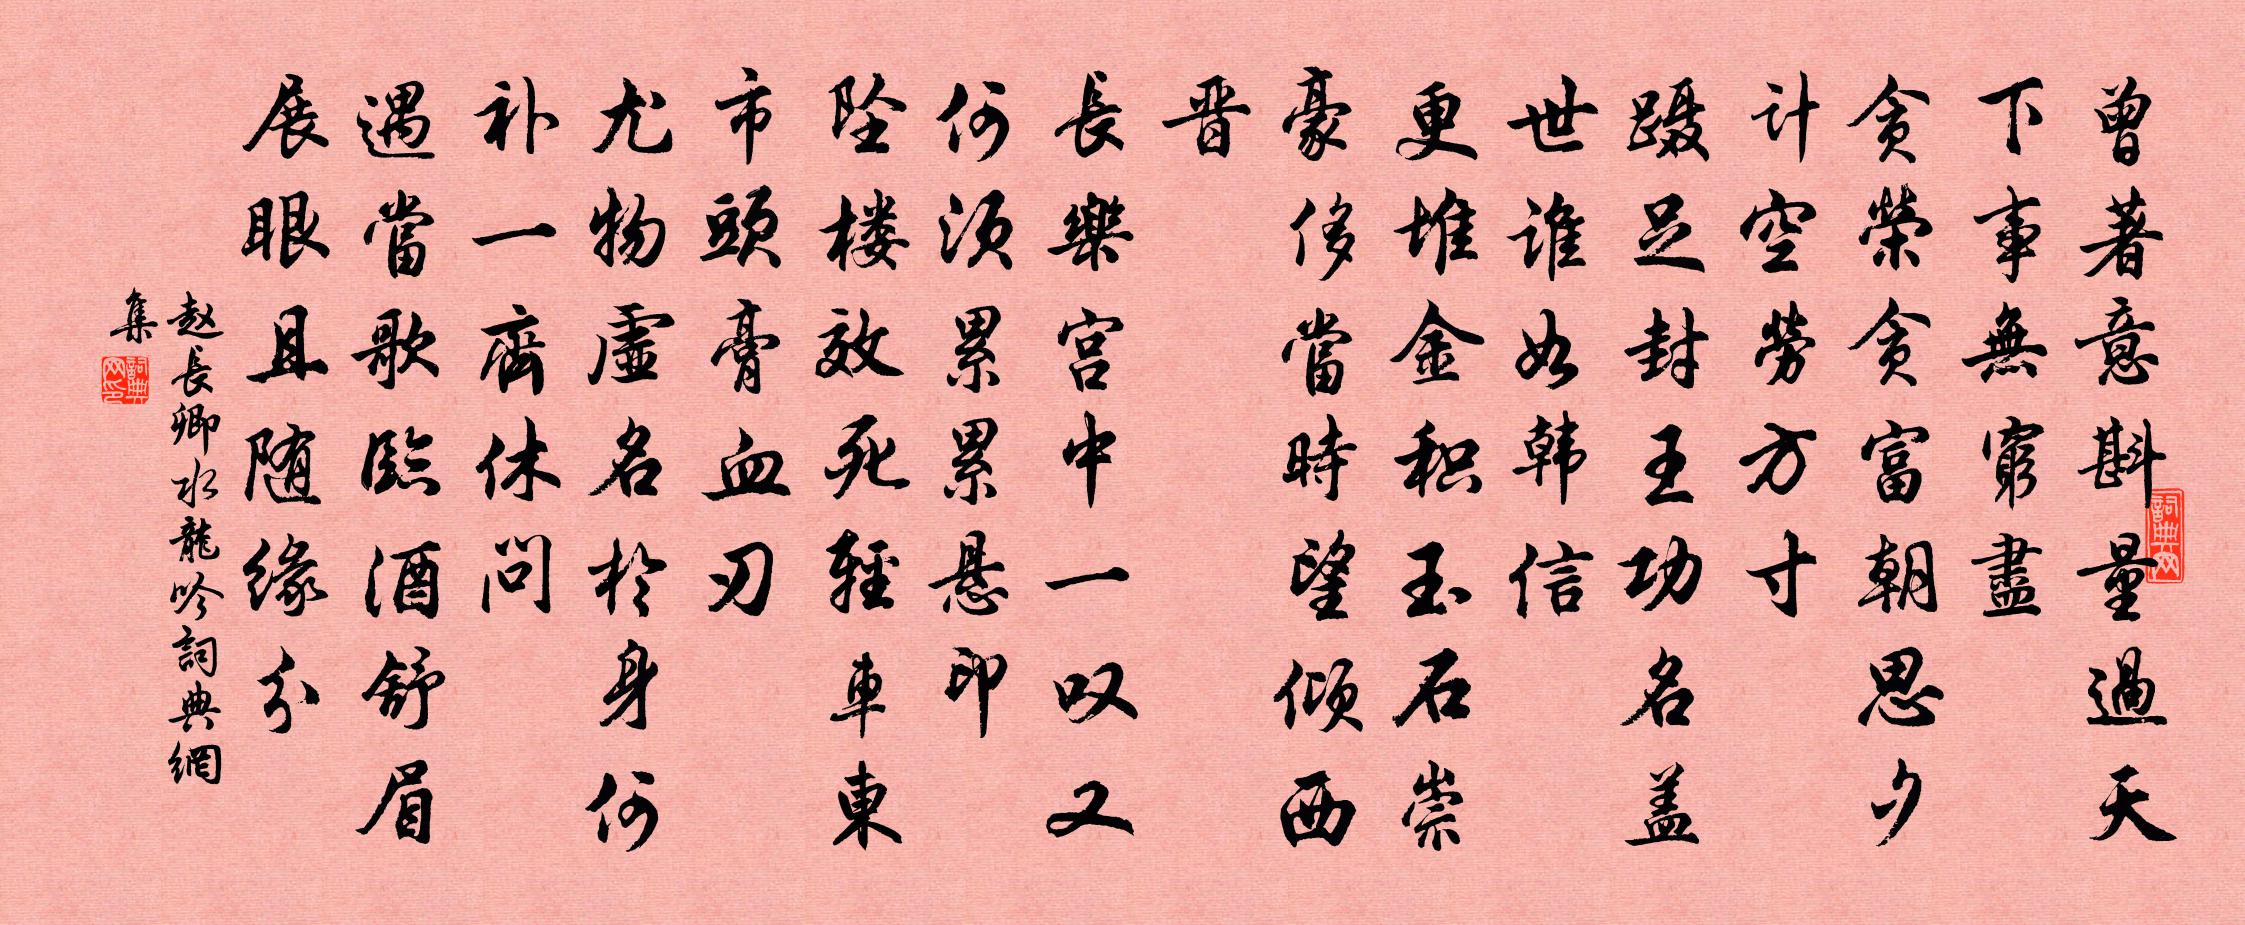 曾著意斟量過天
下事無窮盡
貪榮貪富朝思夕
計空勞方寸
蹑足封王功名盖
世谁如韩信
更堆金积玉石崇
豪侈當時望倾西
晋
長樂宫中一叹又
何须累累悬印
坠楼效死輕車東
市頭膏血刃
尤物虚名於身何
补一齊休问
遇當歌臨酒舒眉
展眼且随缘分
赵長卿水龍吟詞典網
集
詞典网
詞典网印